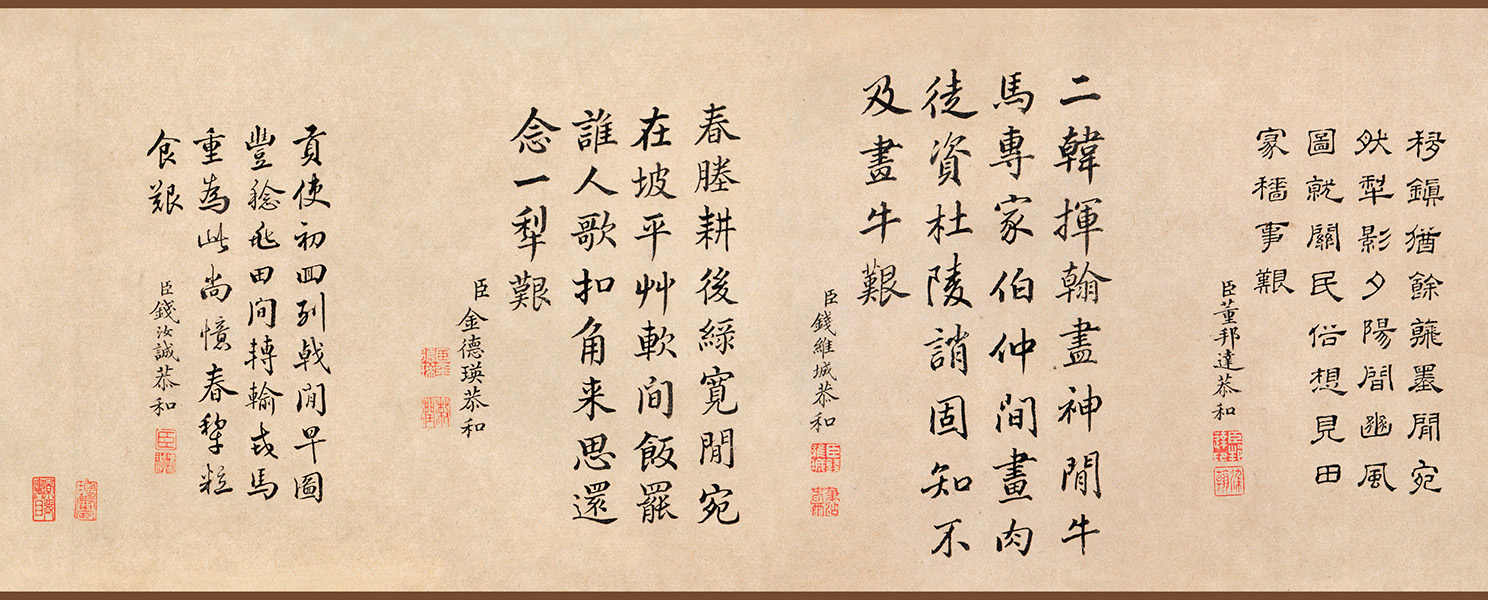 移鎮猶餘蘸墨閒宛
然犁影夕陽間豳風
圖就關民俗想見田
家穡事艱
臣董邦達恭和
二韓揮翰盡神閒牛
馬專家伯仲間畫肉
徒資杜陵誚固知不
及畫牛艱
臣錢維城恭和
春塍耕後綠寬閒宛
在坡平艸軟間飯罷
誰人歌扣角来思還
念一犁艱
臣金德瑛恭和
貢使初回列戟閒早圖
豐稔田間轉輸戎馬
重為此尚憶春犁粒
食艱
臣錢汝誠恭和